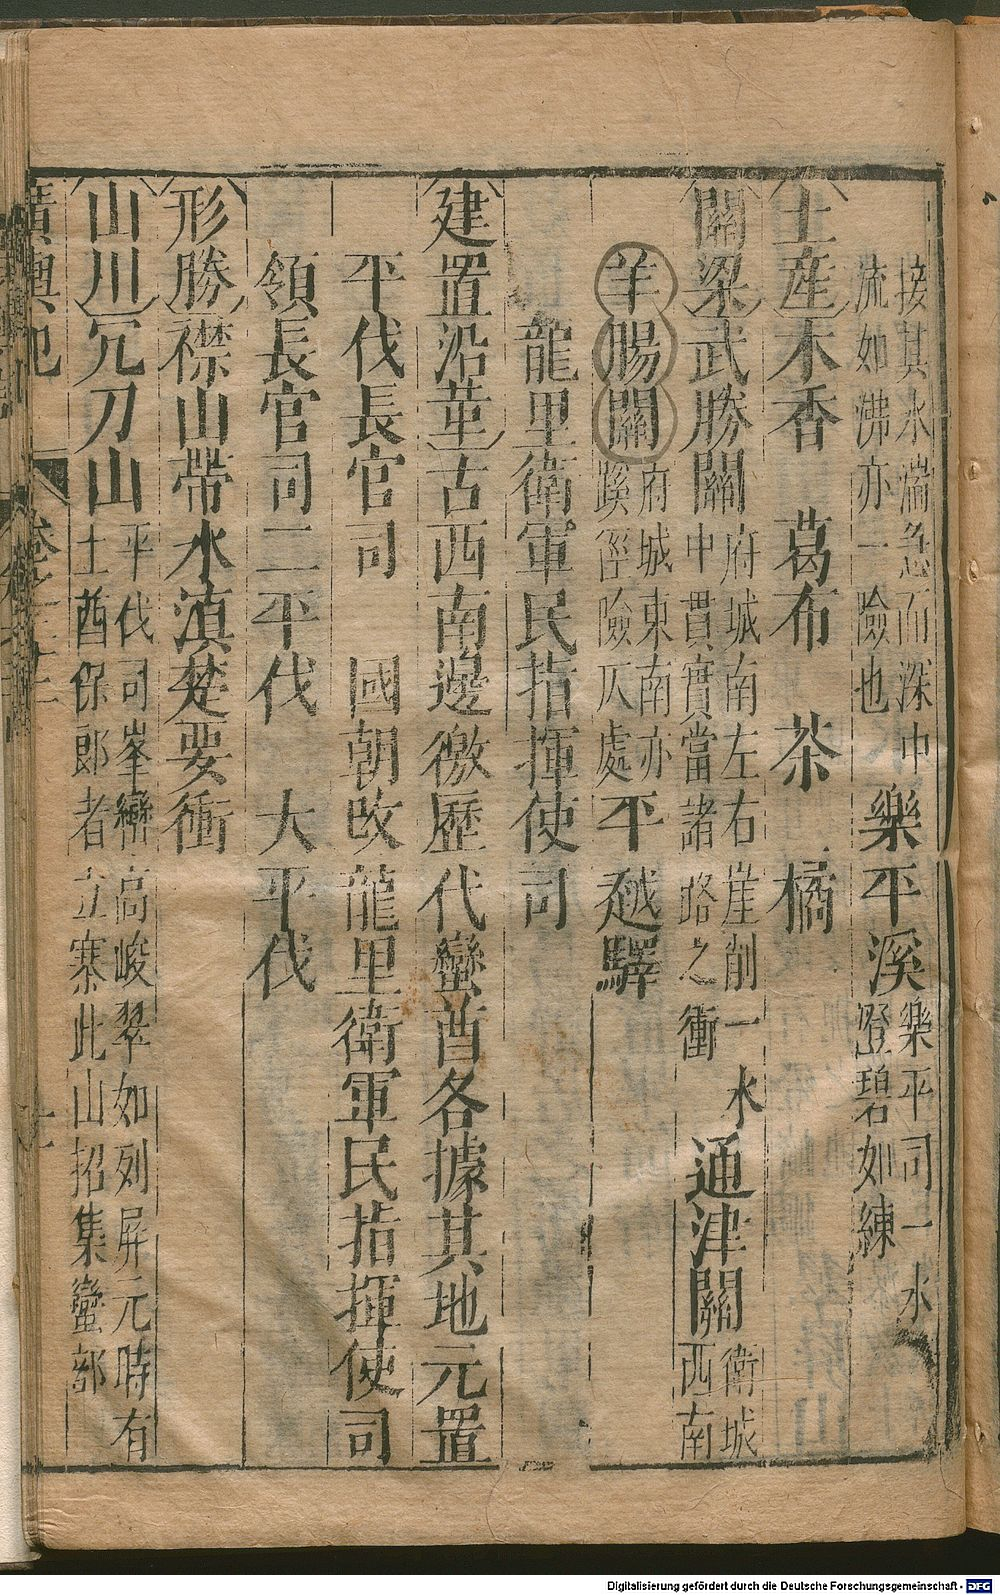 接其水湍急而深中流如沸亦一險也樂平溪樂平司一水澄碧如練
土産木香 葛布 茶 橘
關梁武勝關府城南左右崖削一水中貫實當諸路之衝通津關衛城西南
羊腸關府城東南亦蹊徑險仄處平越驛
龍里衛軍民指揮使司
建置沿革古西南邊徼歷代蠻酋各據其地元置
平伐長官司 國朝改龍里衛軍民指揮使司
領長官司二平伐 大平伐
形勝襟山帶水滇楚要衝
山川冗刀山平伐司峯巒高峻翠如列屏元時有土酋保郎者立寨此山招集蠻部
廣輿記 卷之二十二 十一
Digitalisierung gefördert durch die Deutsche Forschungsgemeinschaft - DFG